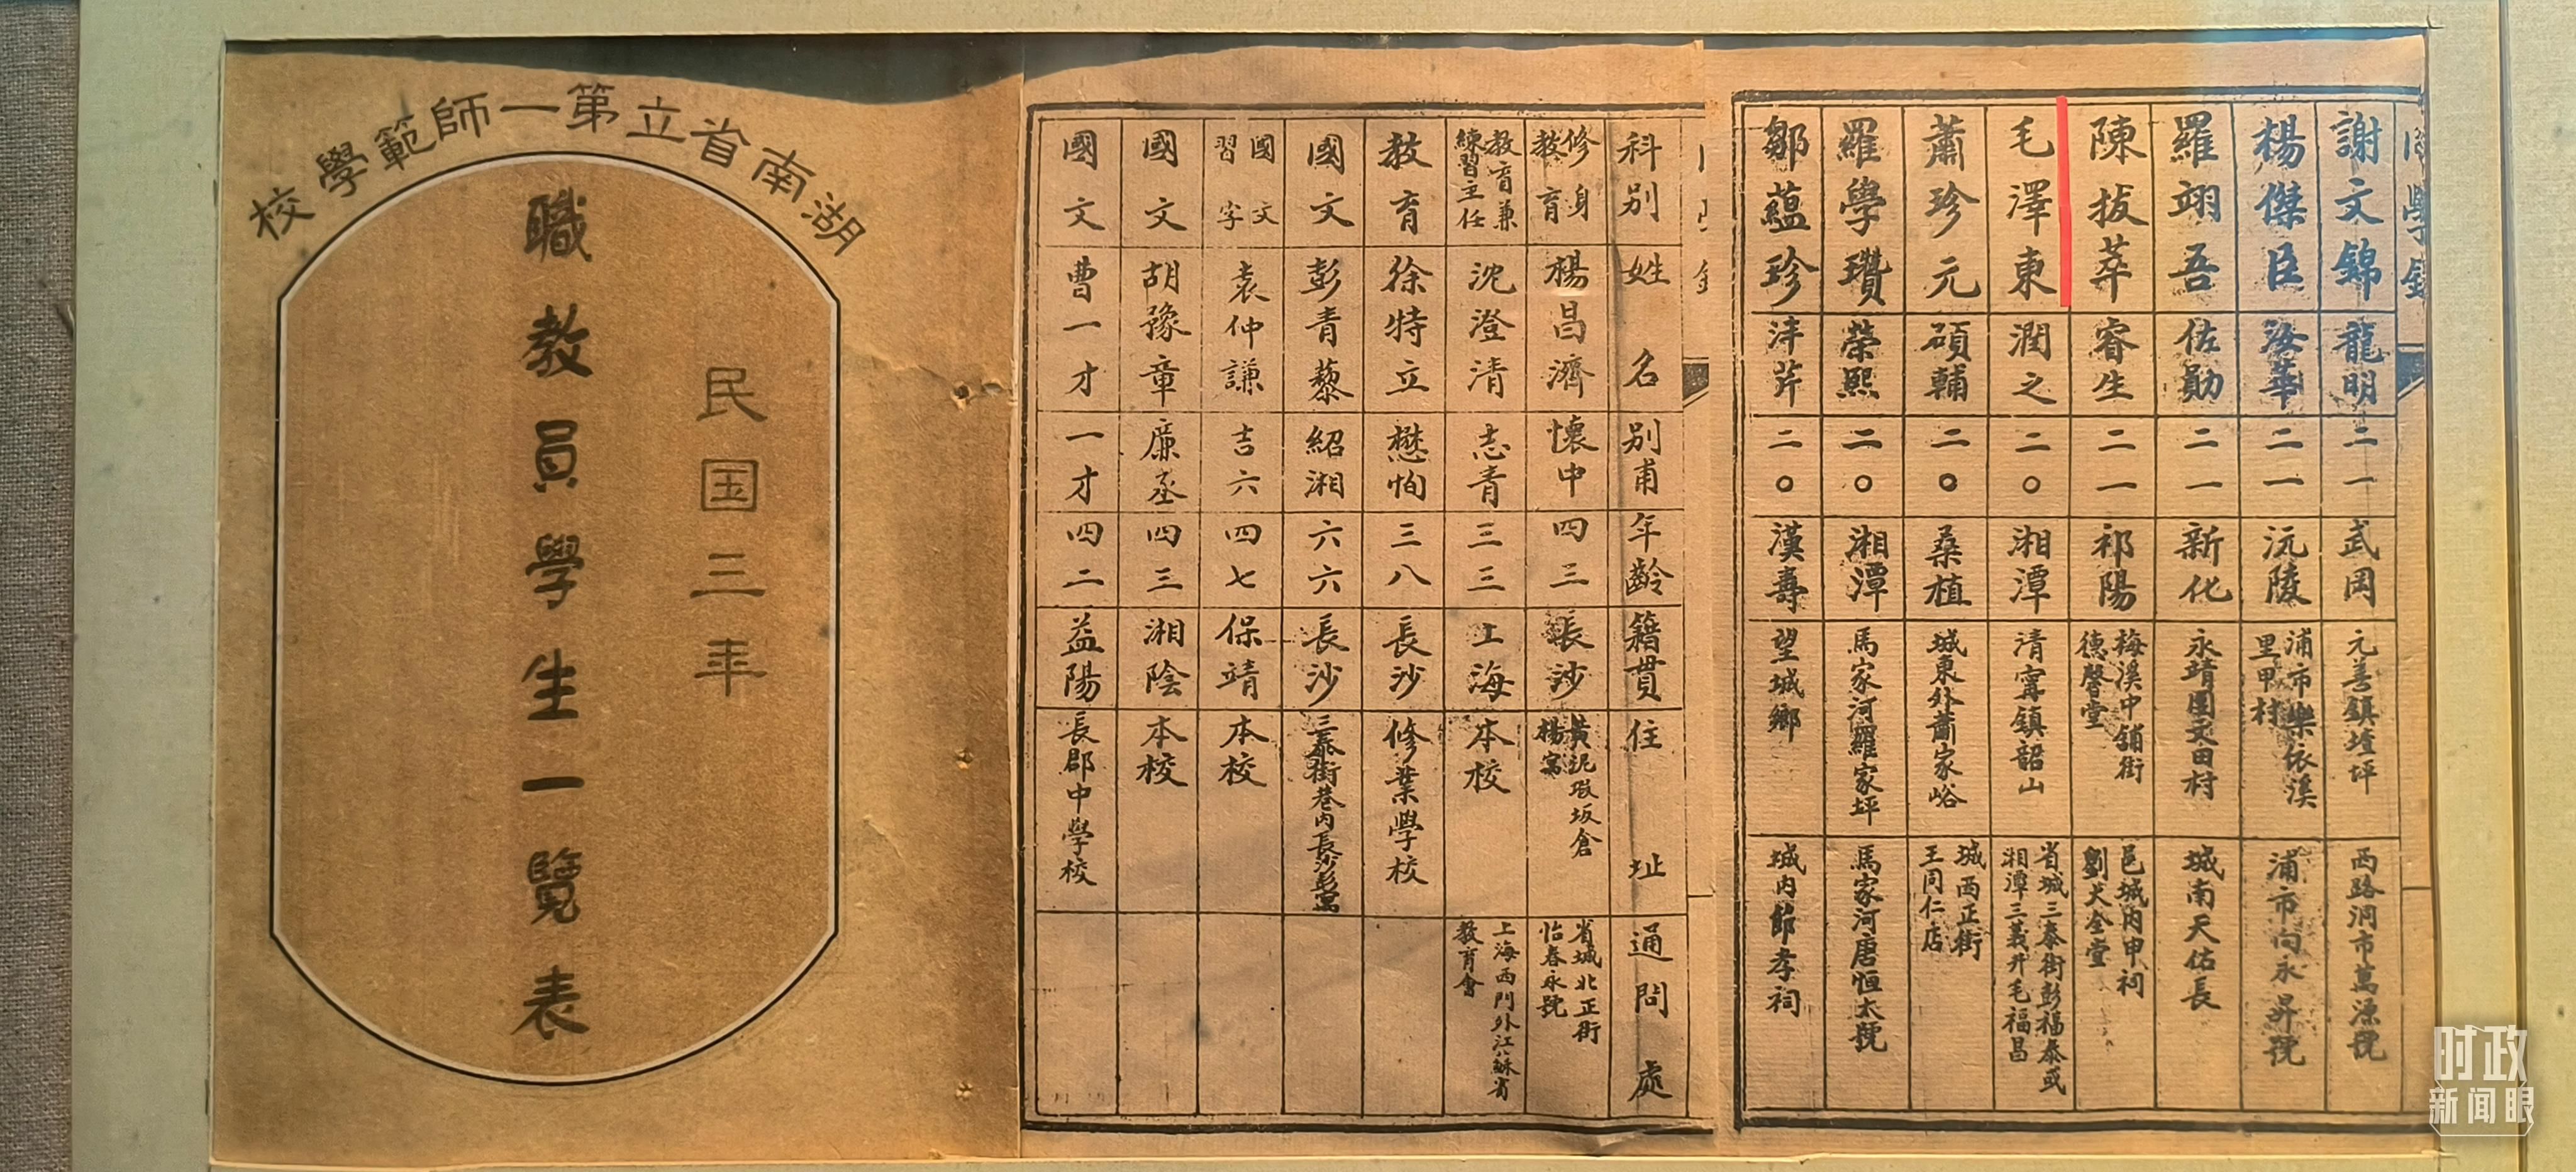 湖南省立第一師範學校
民国三年
職教員學生一覽表
科別 姓名 別甫 年齡 籍貫 住址 通問處
修身教育 楊昌濟 懷中 四三 長沙 楊寓 省城北正街怡春永號
教育兼練習主任 沈澄清 志青 三三 上海 本校 上海西門外江蘇省教育會
教育 徐特立 懋恂 三八 長沙 修業學校
國文 彭青藜 紹湘 六六 長沙 三泰街巷内長沙彭寓
國文習字 袁仲謙 吉六 四七 保靖 本校
國文 胡豫章 廉丞 四三 湘陰 本校
國文 曹一才 一才 四二 益陽 長郡中學校
同學錄
謝文錦 龍明 二一 武岡 元善鎮 西路洞市萬源號
楊傑臣 海華 二一 沅陵 浦市樂依溪里甲村 浦市向永昇號
羅翊吾 佐勛 二一 新化 永靖團文田村 城南天佑長
陳拔萃 睿生 二一 祁陽 梅溪中舖街德馨堂 邑城内申祠劉大全堂
毛澤東 潤之 二〇 湘潭 清寧鎮韶山 省城三泰街彭福泰或湘潭三義升毛福昌
蕭珍元 碩輔 二〇 桑植 城東外蕭家峪 城西正街王同仁店
羅學瓚 榮熙 二〇 湘潭 馬家河羅家坪 馬家河唐恒太號
鄒蘊珍 泮芹 二〇 漢壽 望城鄉 城内節孝祠
时政
新闻眼